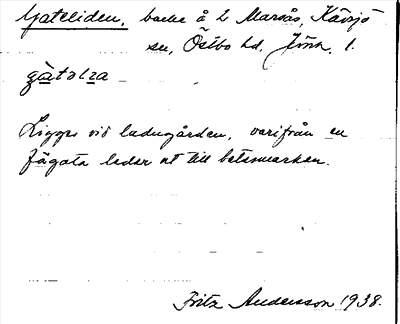 Gateliden, backe å 2 Marsås, Kävsjö
sn, Östbo hd, Jönk. l.
gàtəlıa
Ligger vid ladugården, varifrån en
fägata leder ut till betesmarken.
Fritz Andersson 1938.